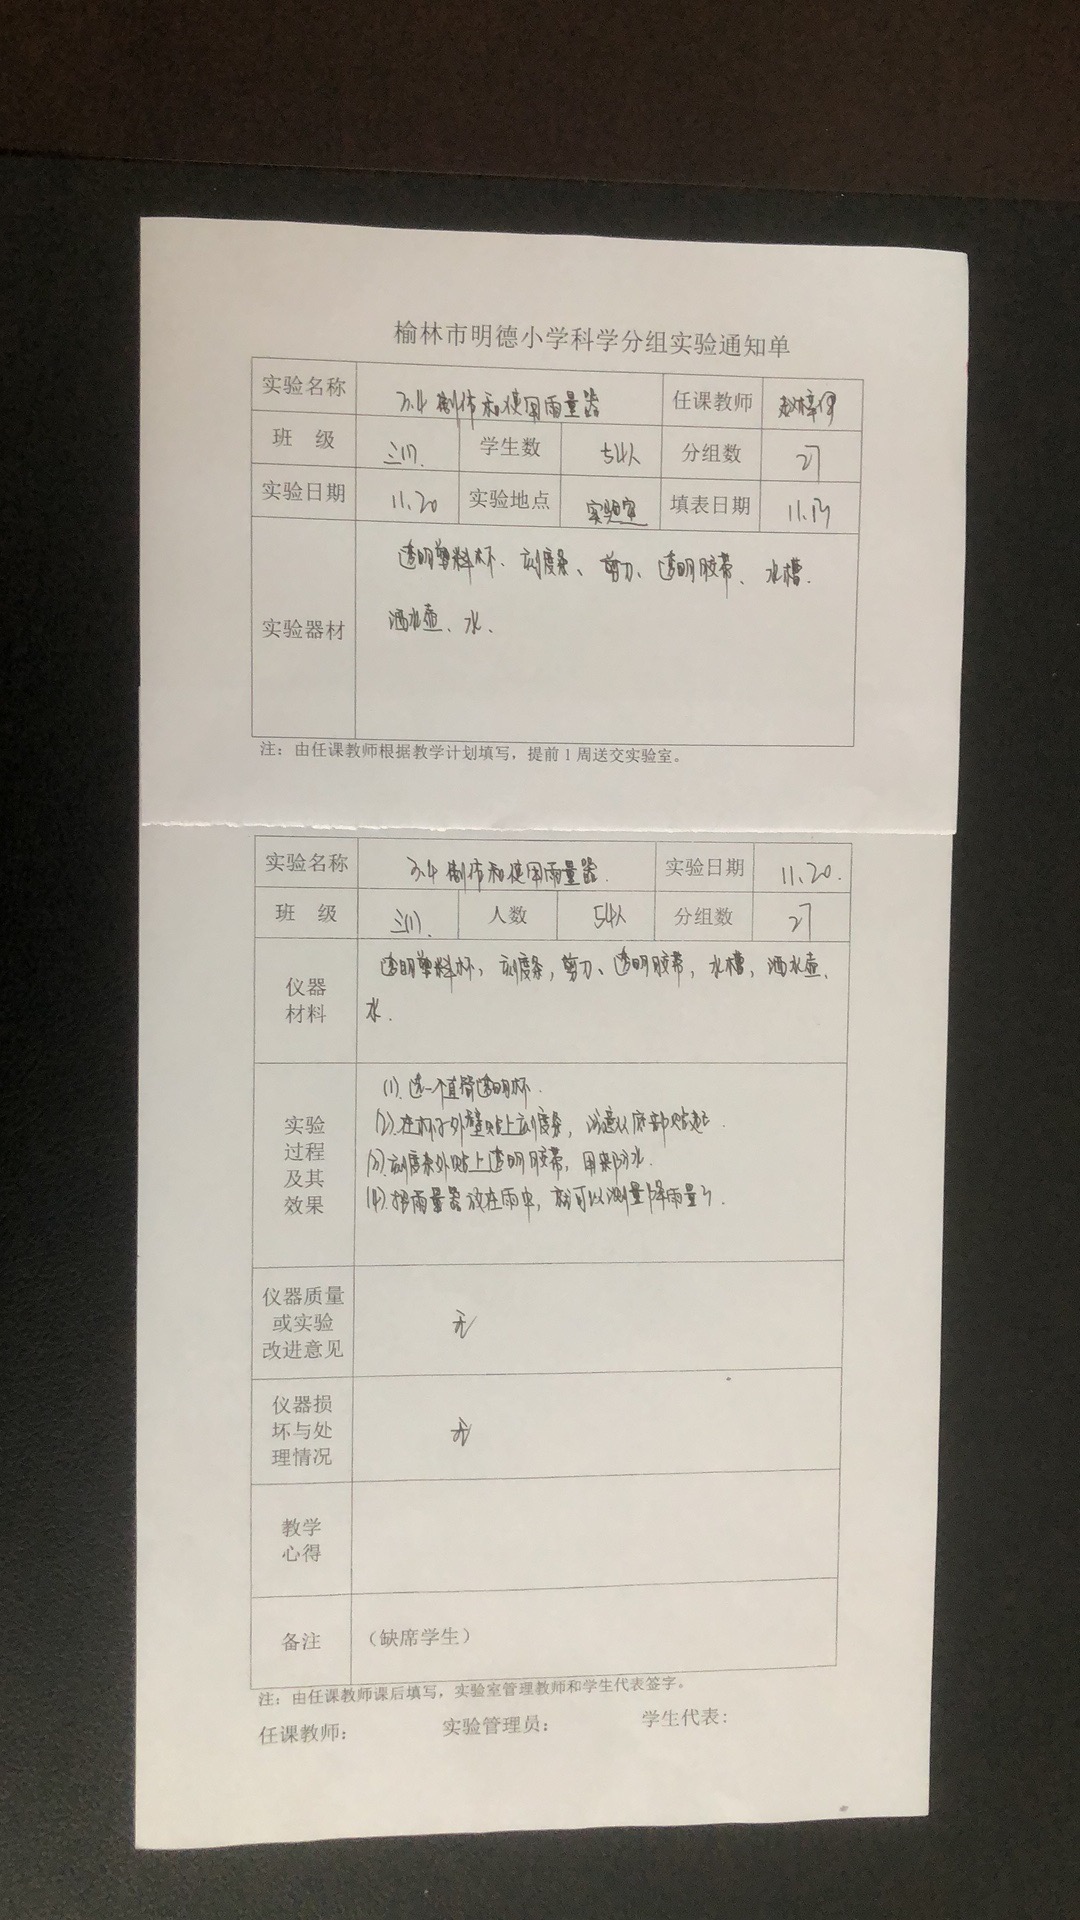 榆林市明德小学科学分组实验通知单
实验名称 3.4 制作和使用雨量器 任课教师
班 级 三(1). 学生数 54人 分组数 27
实验日期 11.20 实验地点 实验室 填表日期 11.13
实验器材 透明塑料杯、刻度条、剪刀、透明胶带、水槽.
洒水壶、水、
注：由任课教师根据教学计划填写，提前 1 周送交实验室。
实验名称 3.4 制作和使用雨量器. 实验日期 11.20.
班 级 三(1). 人数 54人 分组数 27
仪器材料 透明塑料杯, 刻度条, 剪刀、透明胶带, 水槽, 洒水壶、
水.
实验过程及其效果 (1). 选一个直筒透明杯.
(2). 在杯子外壁贴上刻度条, 注意从底部贴起.
(3). 刻度条外贴上透明胶带, 用来防水.
(4). 把雨量器放在雨中, 就可以测量降雨量了.
仪器质量或实验改进意见 无
仪器损坏与处理情况 无
教学心得
备注 （缺席学生）
注：由任课教师课后填写，实验室管理教师和学生代表签字。
任课教师： 实验管理员： 学生代表：